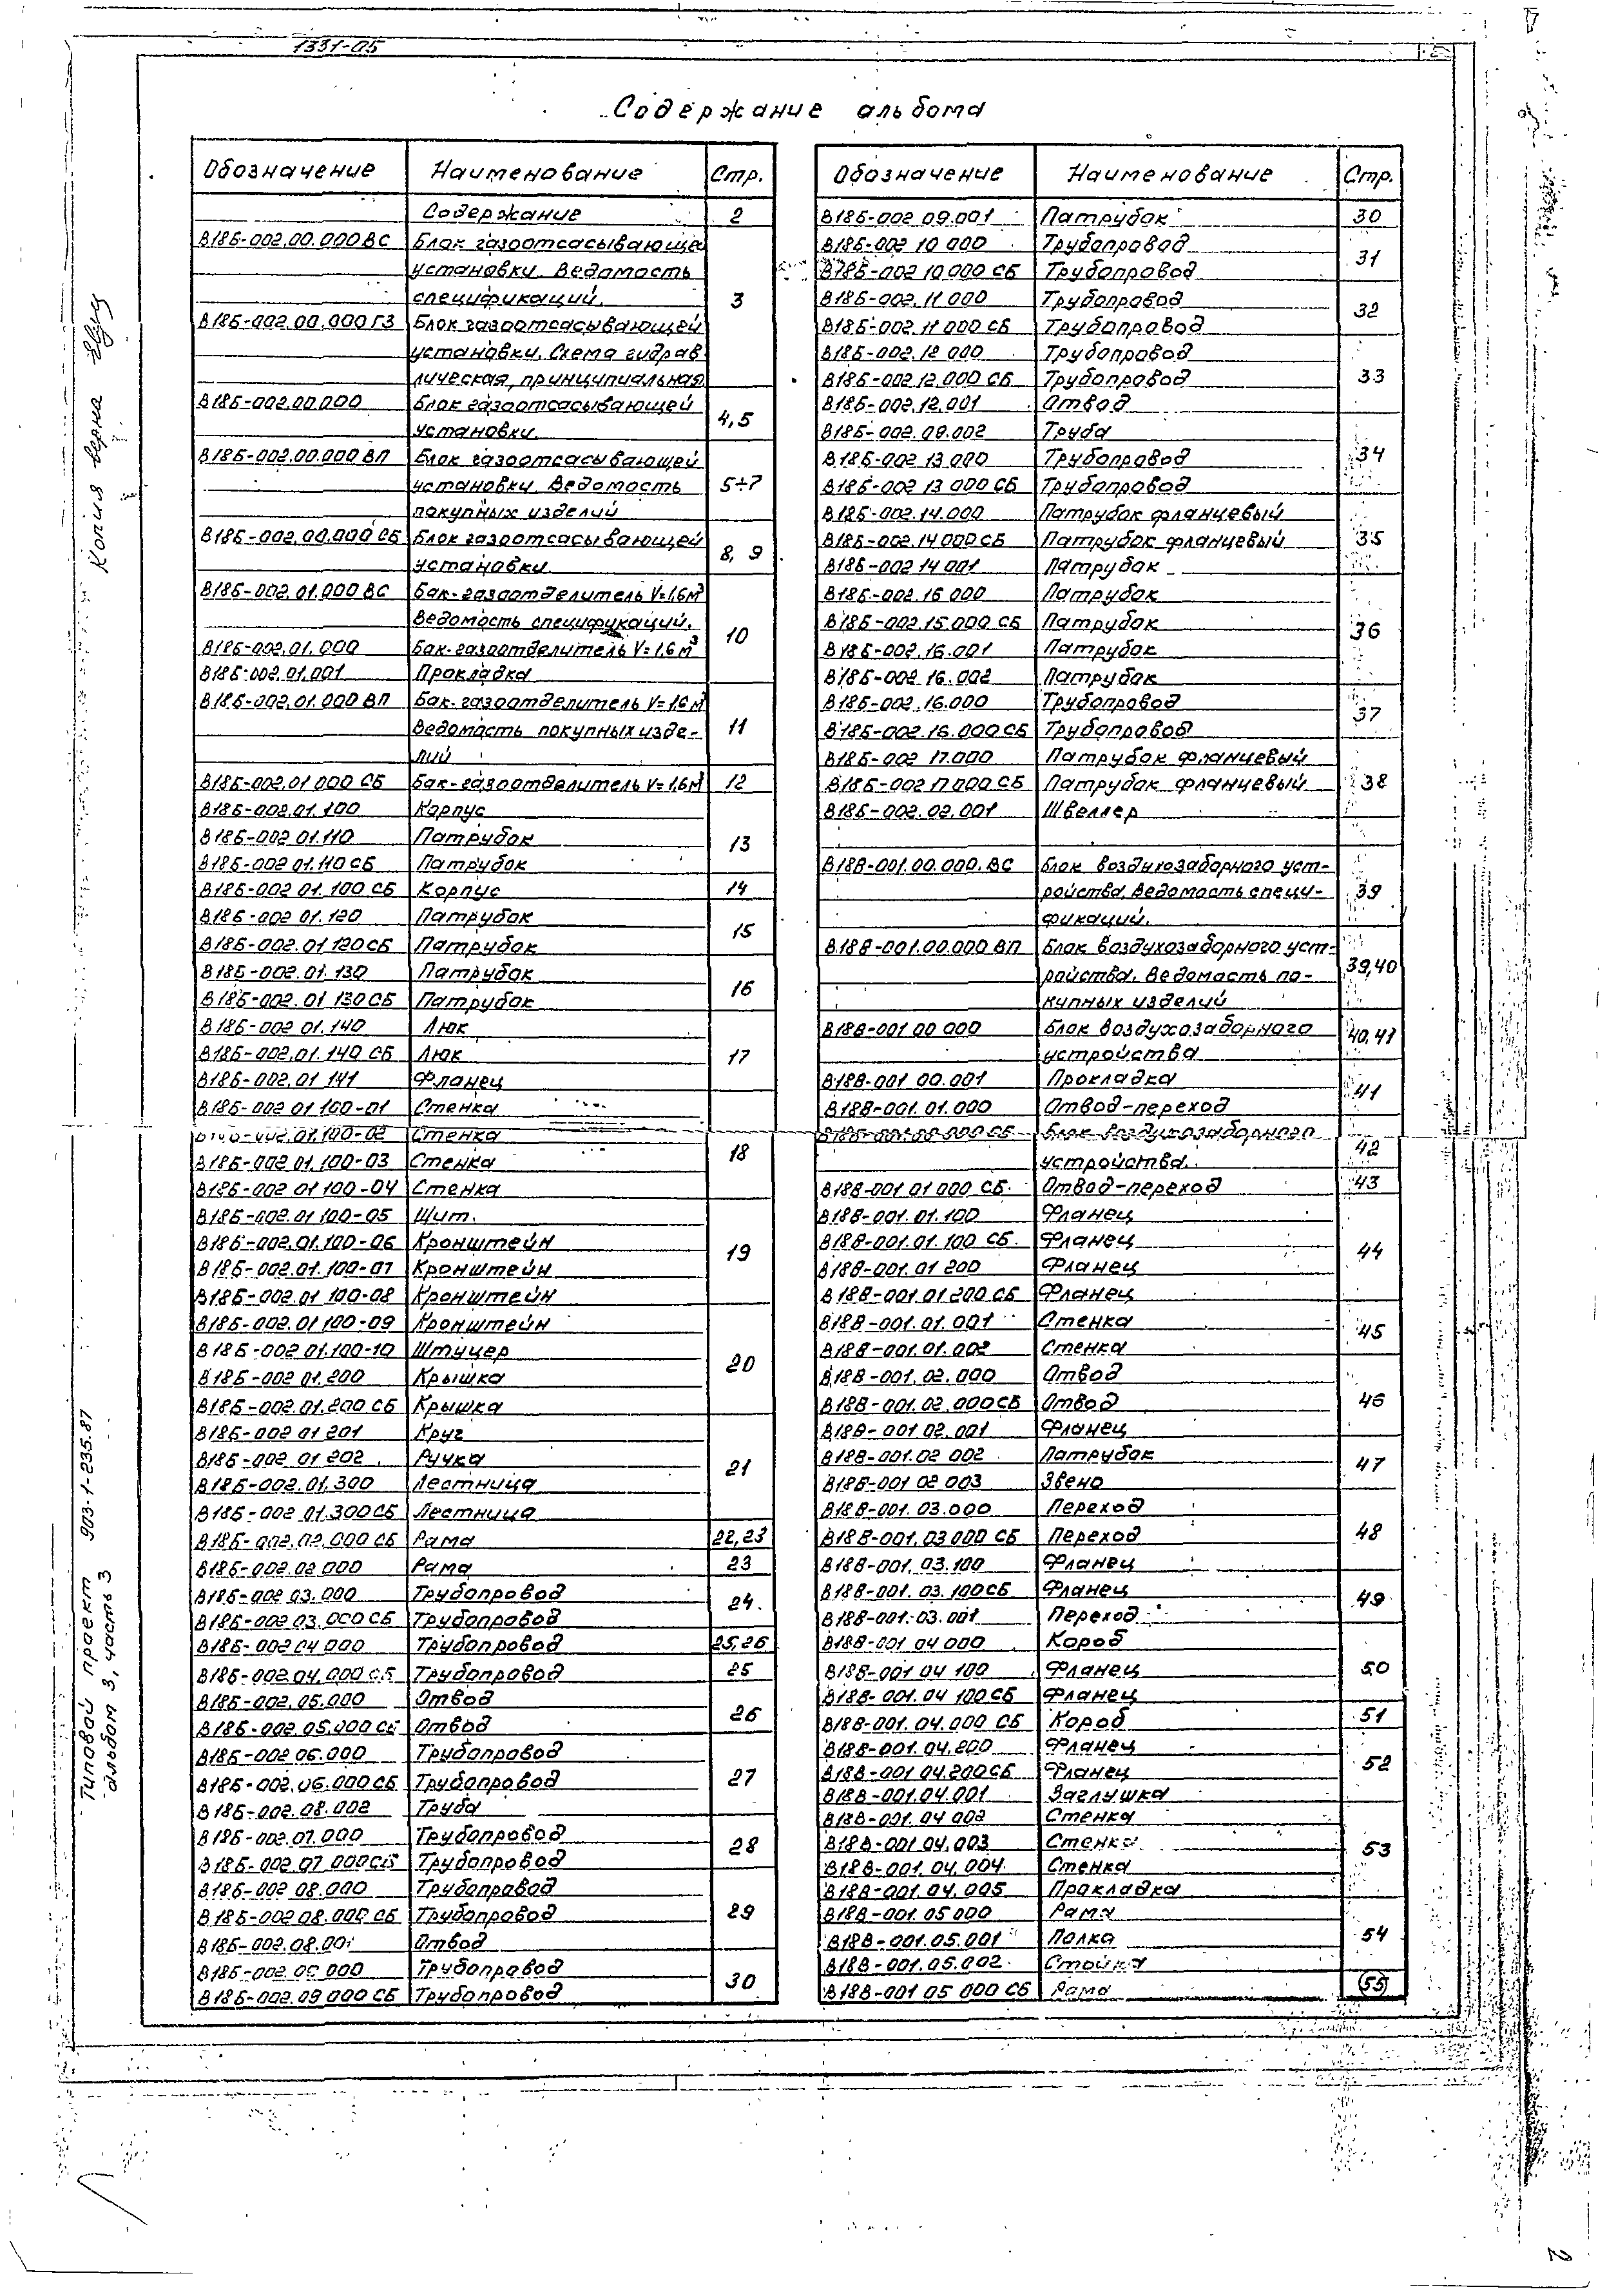 1331-05
Содержание альбома
Обозначение Наименование Стр.
Содержание 2
В18Б-002.00.000 ВС Блок газоотсасывающей
установки. Ведомость
спецификаций. 3
В18Б-002.00.000 Г3 Блок газоотсасывающей
установки. Схема гидрав
лическая, принципиальная
В18Б-002.00.000 Блок газоотсасывающей 4,5
установки.
В18Б-002.00.000 ВП Блок газоотсасывающей
установки. Ведомость 5÷7
покупных изделий
В18Б-002.00.000 СБ Блок газоотсасывающей 8, 9
установки.
В18Б-002.01.000 ВС Бак-газоотделитель V=1,6м³
Ведомость спецификаций. 10
В18Б-002.01.000 Бак-газоотделитель V=1,6м³
В18Б-002.01.001 Прокладка
В18Б-002.01.000 ВП Бак-газоотделитель V=1,6м³
Ведомость покупных изде- 11
лий
В18Б-002.01.000 СБ Бак-газоотделитель V=1,6м³ 12
В18Б-002.01.100 Корпус
В18Б-002.01.110 Патрубок 13
В18Б-002.01.110 СБ Патрубок
В18Б-002.01.100 СБ Корпус 14
В18Б-002.01.120 Патрубок 15
В18Б-002.01.120 СБ Патрубок
В18Б-002.01.130 Патрубок 16
В18Б-002.01.130 СБ Патрубок
В18Б-002.01.140 Люк
В18Б-002.01.140 СБ Люк 17
В18Б-002.01.141 Фланец
В18Б-002.01.100-01 Стенка
В18Б-002.01.100-02 Стенка 18
В18Б-002.01.100-03 Стенка
В18Б-002.01.100-04 Стенка
В18Б-002.01.100-05 Щит.
В18Б-002.01.100-06 Кронштейн 19
В18Б-002.01.100-07 Кронштейн
В18Б-002.01.100-08 Кронштейн
В18Б-002.01.100-09 Кронштейн
В18Б-002.01.100-10 Штуцер 20
В18Б-002.01.200 Крышка
В18Б-002.01.200 СБ Крышка
В18Б-002.01.201 Круг
В18Б-002.01.202 Ручка 21
В18Б-002.01.300 Лестница
В18Б-002.01.300 СБ Лестница
В18Б-002.02.000 СБ Рама 22,23
В18Б-002.02.000 Рама 23
В18Б-002.03.000 Трубопровод 24.
В18Б-002.03.000 СБ Трубопровод
В18Б-002.04.000 Трубопровод 25,26
В18Б-002.04.000 СБ Трубопровод 25
В18Б-002.05.000 Отвод 26
В18Б-002.05.000 СБ Отвод
В18Б-002.06.000 Трубопровод
В18Б-002.06.000 СБ Трубопровод 27
В18Б-002.08.002 Труба
В18Б-002.07.000 Трубопровод 28
В18Б-002.07.000 СБ Трубопровод
В18Б-002.08.000 Трубопровод
В18Б-002.08.000 СБ Трубопровод 29
В18Б-002.08.001 Отвод
В18Б-002.09.000 Трубопровод 30
В18Б-002.09.000 СБ Трубопровод
Обозначение Наименование Стр.
В18Б-002.09.001 Патрубок 30
В18Б-002.10.000 Трубопровод 31
В18Б-002.10.000 СБ Трубопровод
В18Б-002.11.000 Трубопровод 32
В18Б-002.11.000 СБ Трубопровод
В18Б-002.12.000 Трубопровод
В18Б-002.12.000 СБ Трубопровод 33
В18Б-002.12.001 Отвод
В18Б-002.09.002 Труба
В18Б-002.13.000 Трубопровод 34
В18Б-002.13.000 СБ Трубопровод
В18Б-002.14.000 Патрубок фланцевый
В18Б-002.14.000 СБ Патрубок фланцевый 35
В18Б-002.14.001 Патрубок
В18Б-002.15.000 Патрубок
В18Б-002.15.000 СБ Патрубок 36
В18Б-002.15.001 Патрубок
В18Б-002.15.002 Патрубок
В18Б-002.16.000 Трубопровод 37
В18Б-002.16.000 СБ Трубопровод
В18Б-002.17.000 Патрубок фланцевый
В18Б-002.17.000 СБ Патрубок фланцевый 38
В18Б-002.02.001 Швеллер
В18В-001.00.000.ВС Блок воздухозаборного уст-
ройства. Ведомость специ- 39
фикаций.
В18В-001.00.000 ВП Блок воздухозаборного уст-
ройства. Ведомость по- 39,40
купных изделий
В18В-001.00.000 Блок воздухозаборного 40,41
устройства
В18В-001.00.001 Прокладка 41
В18В-001.01.000 Отвод-переход
В18В-001.00.000 СБ Блок воздухозаборного 42
устройства.
В18В-001.01.000 СБ Отвод-переход 43
В18В-001.01.100 Фланец
В18В-001.01.100 СБ Фланец 44
В18В-001.01.200 Фланец
В18В-001.01.200 СБ Фланец
В18В-001.01.001 Стенка 45
В18В-001.01.002 Стенка
В18В-001.02.000 Отвод
В18В-001.02.000 СБ Отвод 46
В18В-001.02.001 Фланец
В18В-001.02.002 Патрубок 47
В18В-001.02.003 Звено
В18В-001.03.000 Переход
В18В-001.03.000 СБ Переход 48
В18В-001.03.100 Фланец
В18В-001.03.100 СБ Фланец 49
В18В-001.03.001 Переход
В18В-001.04.000 Короб
В18В-001.04.100 Фланец 50
В18В-001.04.100 СБ Фланец
В18В-001.04.000 СБ Короб 51
В18В-001.04.200 Фланец
В18В-001.04.200 СБ Фланец 52
В18В-001.04.001 Заглушка
В18В-001.04.002 Стенка
В18В-001.04.003 Стенка 53
В18В-001.04.004 Стенка
В18В-001.04.005 Прокладка
В18В-001.05.000 Рама
В18В-001.05.001 Полка 54
В18В-001.05.002 Стойка
В18В-001.05.000 СБ Рама 55
Копия верна
Типовой проект 903-1-235.87
альбом 3, часть 3
2